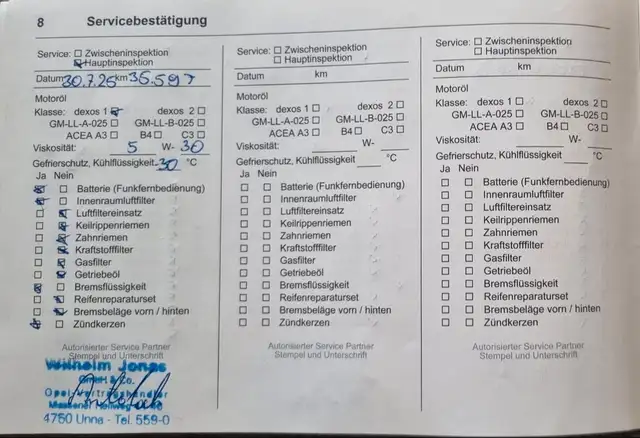 8 Servicebestätigung
Service: Zwischeninspektion
Hauptinspektion
Datum 30.7.25 km 35.597
Motoröl
Klasse: dexos 1 dexos 2
GM-LL-A-025 GM-LL-B-025
ACEA A3 B4 C3
Viskosität: 5 W- 30
Gefrierschutz, Kühlflüssigkeit -30 °C
Ja Nein
Batterie (Funkfernbedienung)
Innenraumluftfilter
Luftfiltereinsatz
Keilrippenriemen
Zahnriemen
Kraftstofffilter
Gasfilter
Getriebeöl
Bremsflüssigkeit
Reifenreparaturset
Bremsbeläge vorn / hinten
Zündkerzen
Autorisierter Service Partner
Stempel und Unterschrift
Wilhelm Jonas
GmbH & Co.
Opel-Vertragshändler
4750 Unna - Tel. 559-0
Service: Zwischeninspektion
Hauptinspektion
Datum km
Motoröl
Klasse: dexos 1 dexos 2
GM-LL-A-025 GM-LL-B-025
ACEA A3 B4 C3
Viskosität: W-
Gefrierschutz, Kühlflüssigkeit °C
Ja Nein
Batterie (Funkfernbedienung)
Innenraumluftfilter
Luftfiltereinsatz
Keilrippenriemen
Zahnriemen
Kraftstofffilter
Gasfilter
Getriebeöl
Bremsflüssigkeit
Reifenreparaturset
Bremsbeläge vorn / hinten
Zündkerzen
Autorisierter Service Partner
Stempel und Unterschrift
Service: Zwischeninspektion
Hauptinspektion
Datum km
Motoröl
Klasse: dexos 1 dexos 2
GM-LL-A-025 GM-LL-B-025
ACEA A3 B4 C3
Viskosität: W-
Gefrierschutz, Kühlflüssigkeit °C
Ja Nein
Batterie (Funkfernbedienung)
Innenraumluftfilter
Luftfiltereinsatz
Keilrippenriemen
Zahnriemen
Kraftstofffilter
Gasfilter
Getriebeöl
Bremsflüssigkeit
Reifenreparaturset
Bremsbeläge vorn / hinten
Zündkerzen
Autorisierter Service Partner
Stempel und Unterschrift